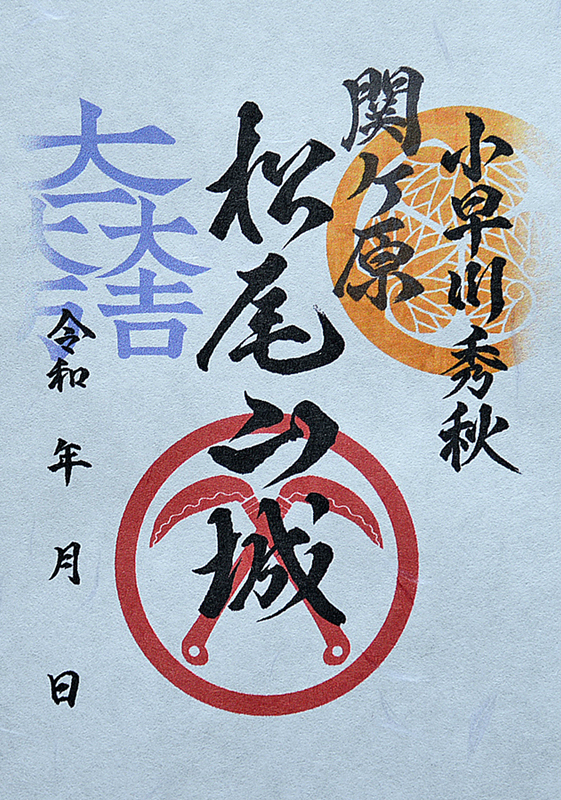 小早川秀秋
関ケ原
松尾山城
大一大万大吉
令和 年 月 日